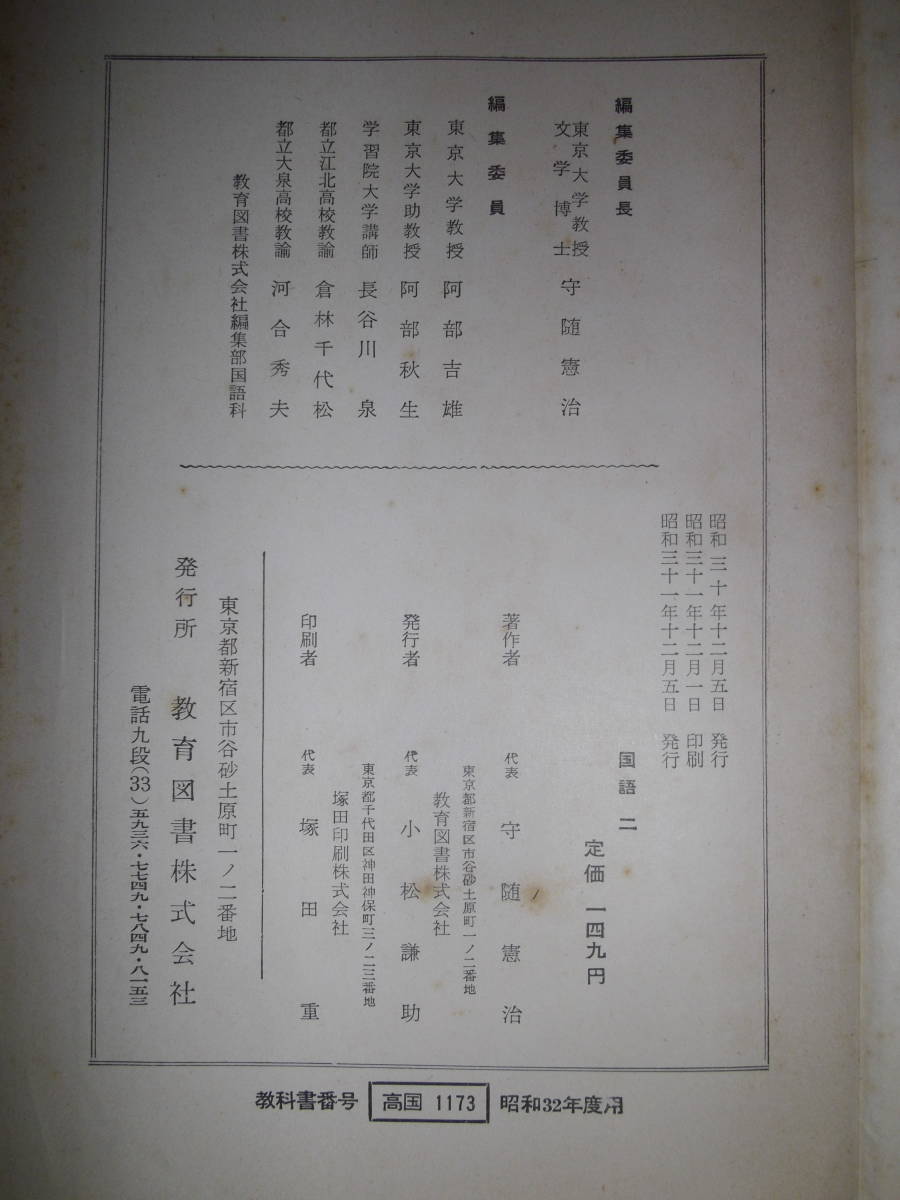 編集委員長
東京大学教授
文学博士
守随憲治
編集委員
東京大学教授 阿部吉雄
東京大学助教授 阿部秋生
学習院大学講師 長谷川泉
都立江北高校教諭 倉林千代松
都立大泉高校教諭 河合秀夫
教育図書株式会社編集部国語科
昭和三十年十二月五日 発行
昭和三十一年十二月一日 印刷
昭和三十一年十二月五日 発行
国語二
定価 一四九円
著作者 代表 守随憲治
東京都新宿区市谷砂土原町一ノ二番地
教育図書株式会社
発行者 代表 小松謙助
東京都千代田区神田神保町三ノ二三番地
塚田印刷株式会社
印刷者 代表 塚田重
東京都新宿区市谷砂土原町一ノ二番地
発行所 教育図書株式会社
電話九段(33)五九三六・七七四九・七八四九・八一五三
教科書番号 高国 1173 昭和32年度用